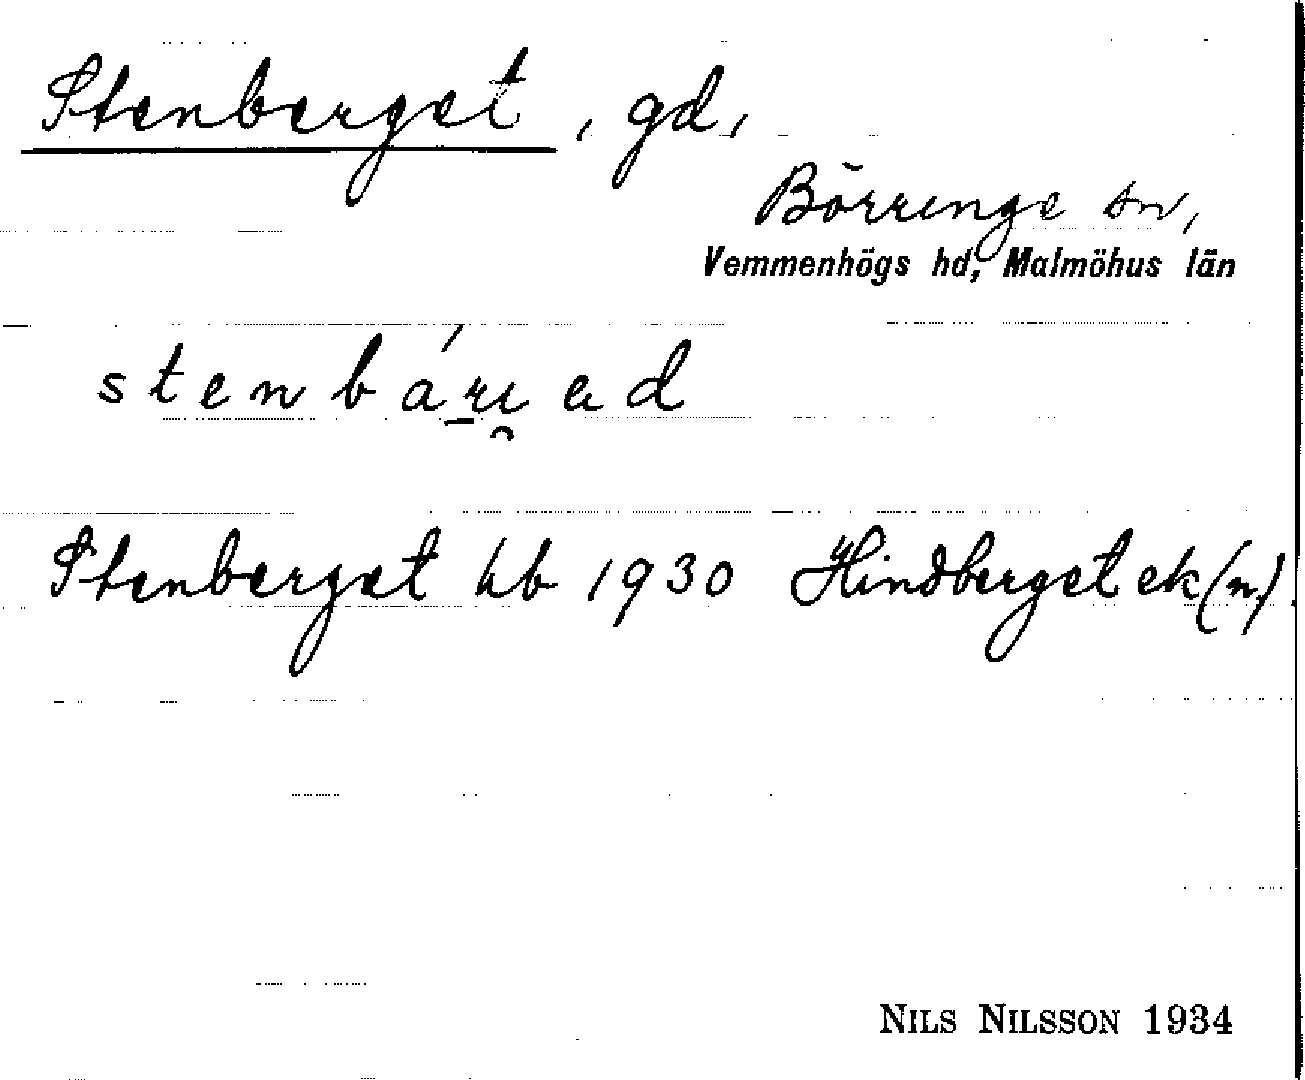 Stenberget, gd,
Börringe sn,
Vemmenhögs hd, Malmöhus län
Stenberget hb 1930 Hindberget ek (n.)
NILS NILSSON 1934